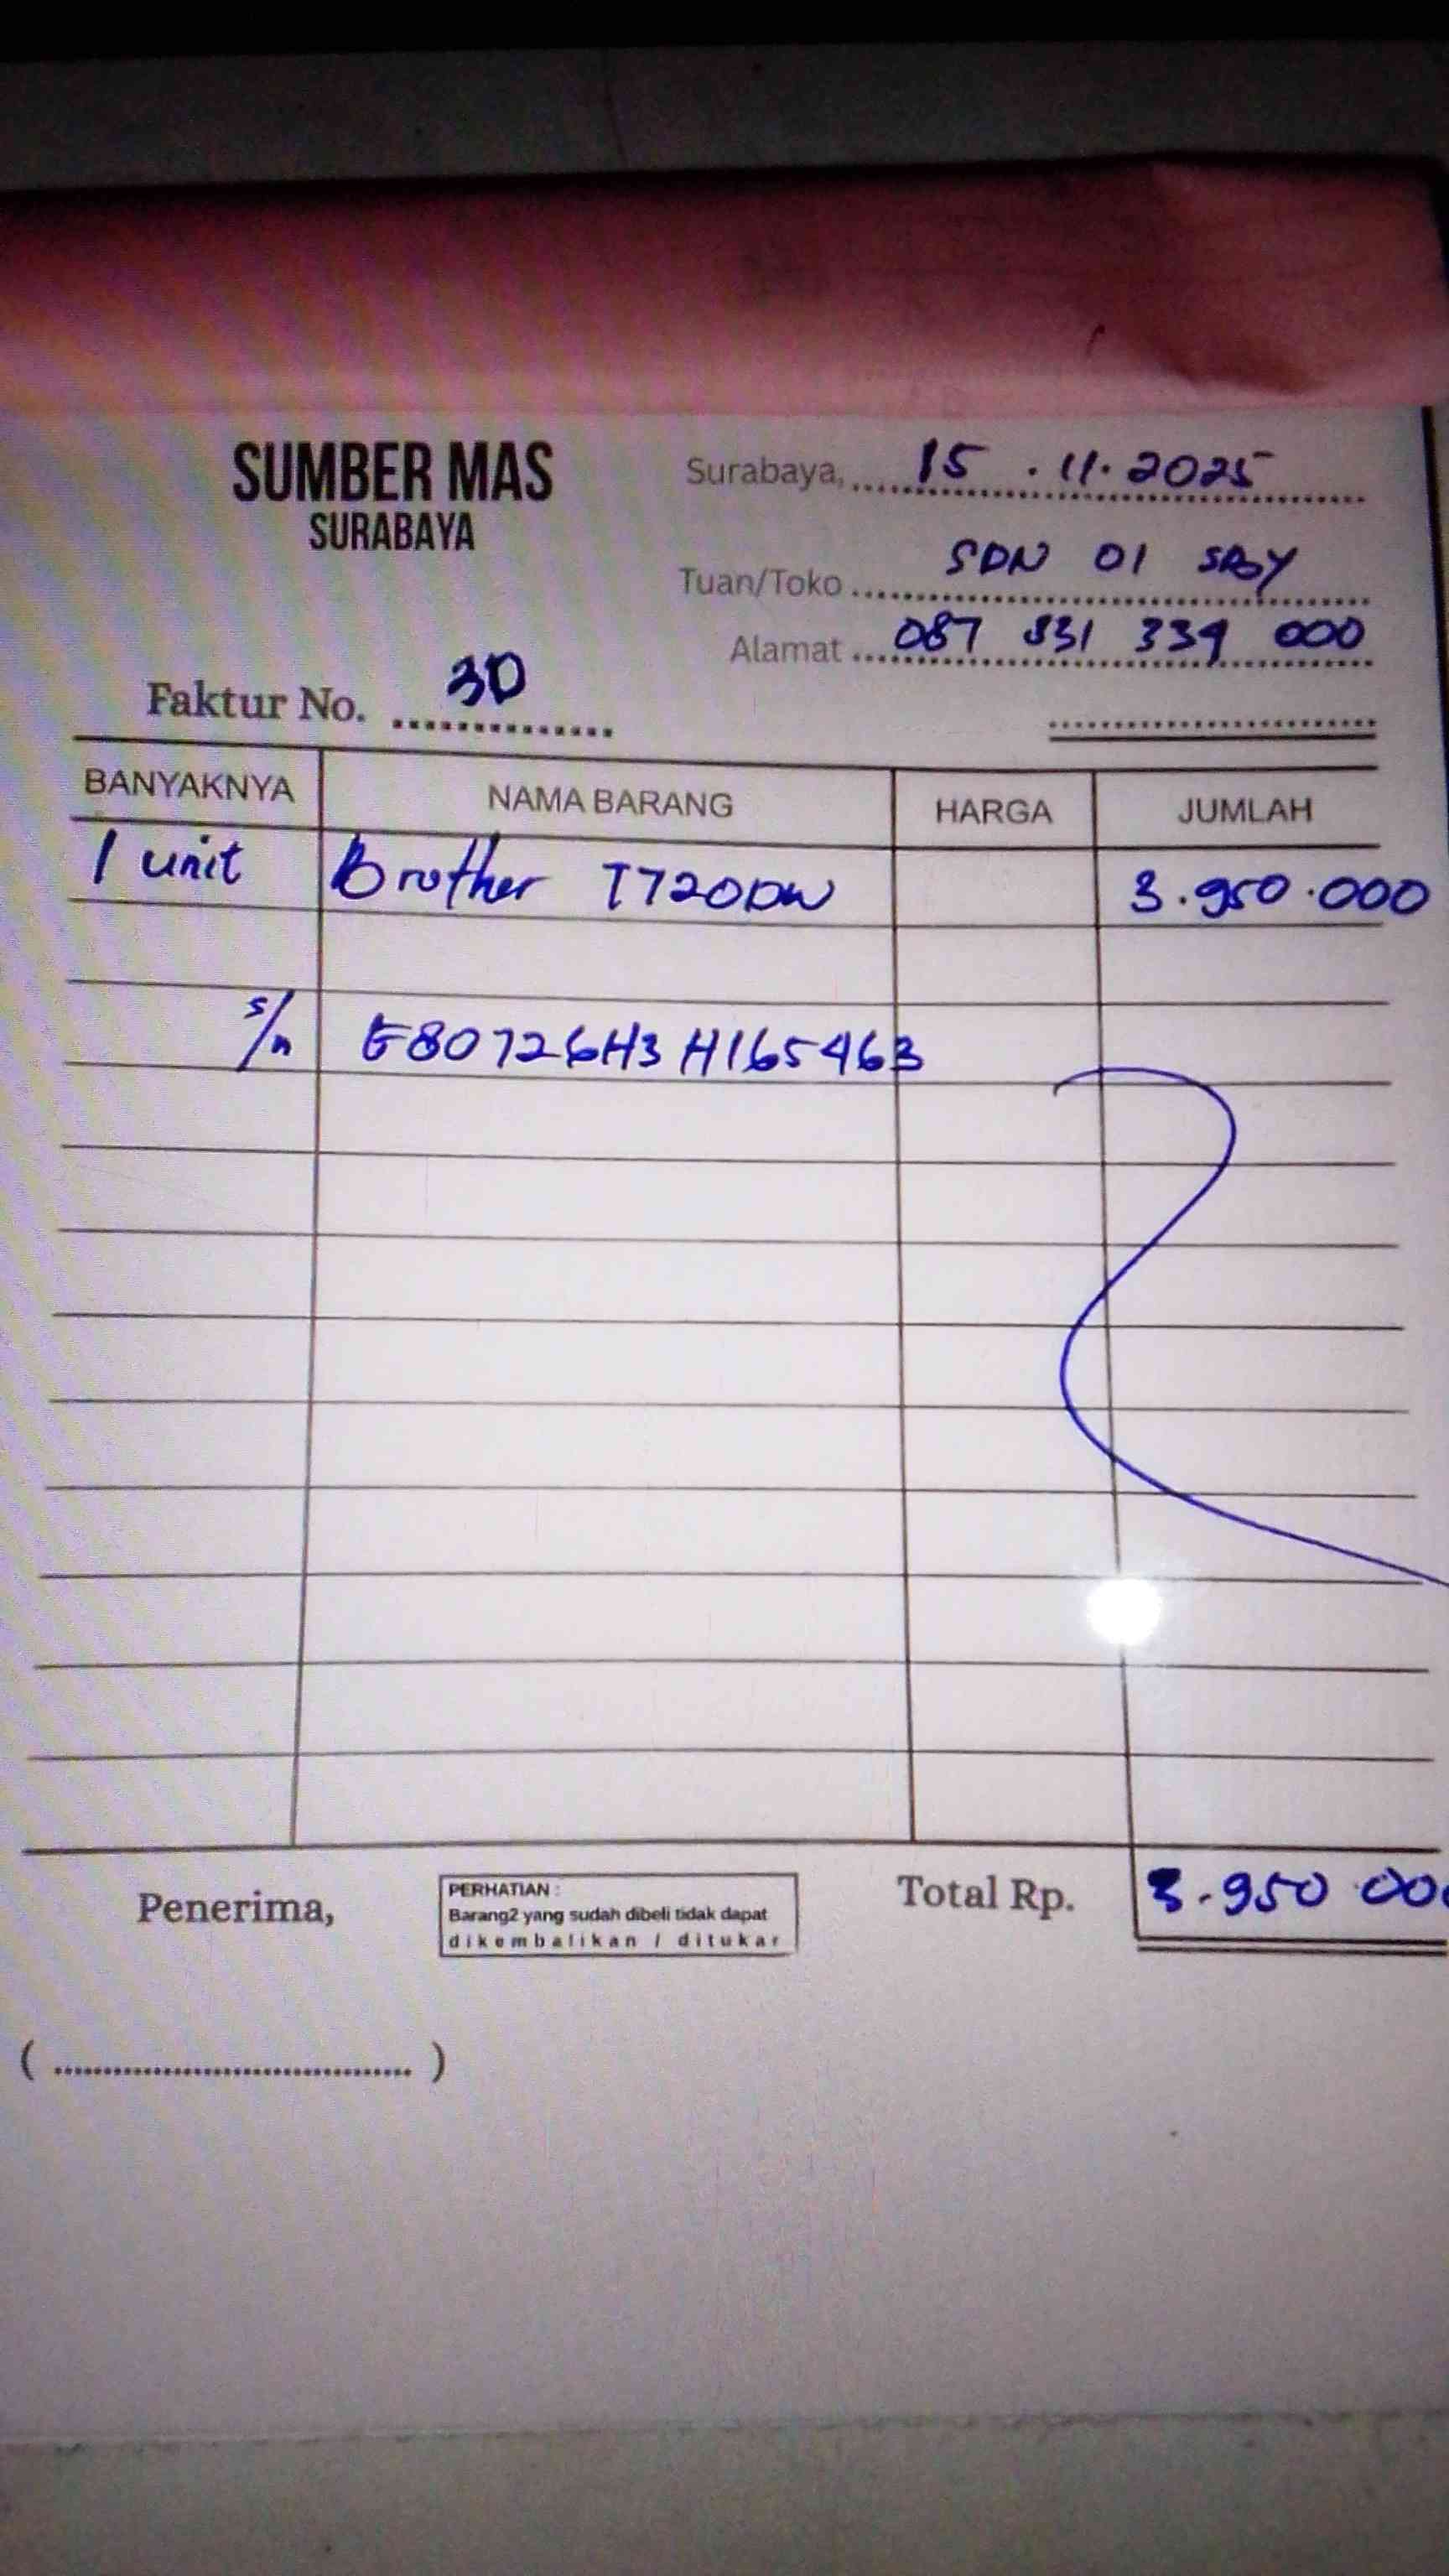 SUMBER MAS
SURABAYA
Surabaya, 15 . 11 . 2025
Tuan/Toko SDN 01 SBY
Alamat 087 831 339 000
Faktur No. 30
BANYAKNYA NAMA BARANG HARGA JUMLAH
1 unit Brother T720DW 3.950.000
s/n E80726H3H165463
Penerima,
PERHATIAN :
Barang2 yang sudah dibeli tidak dapat
dikembalikan / ditukar
Total Rp. 3.950 00
( .................................... )